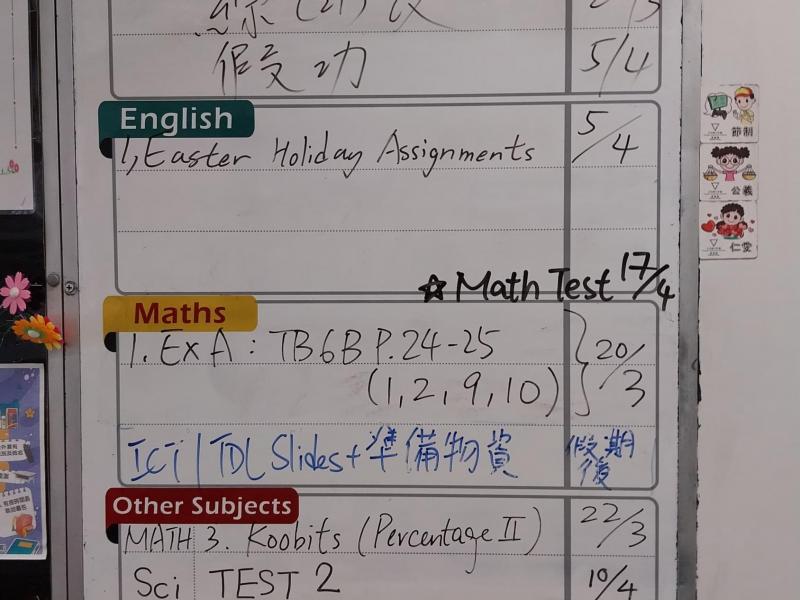 假功 5/4
English
1, Easter Holiday Assignments 5/4
☆ Math Test 17/4
Maths
1. Ex A : TB6B P.24-25
(1, 2, 9, 10) } 20/3
ICT | TDL Slides + 準備物資 假期後
Other Subjects
MATH 3. Koobits (Percentage II) 22/3
Sci TEST 2 10/4
節制
公義
仁愛